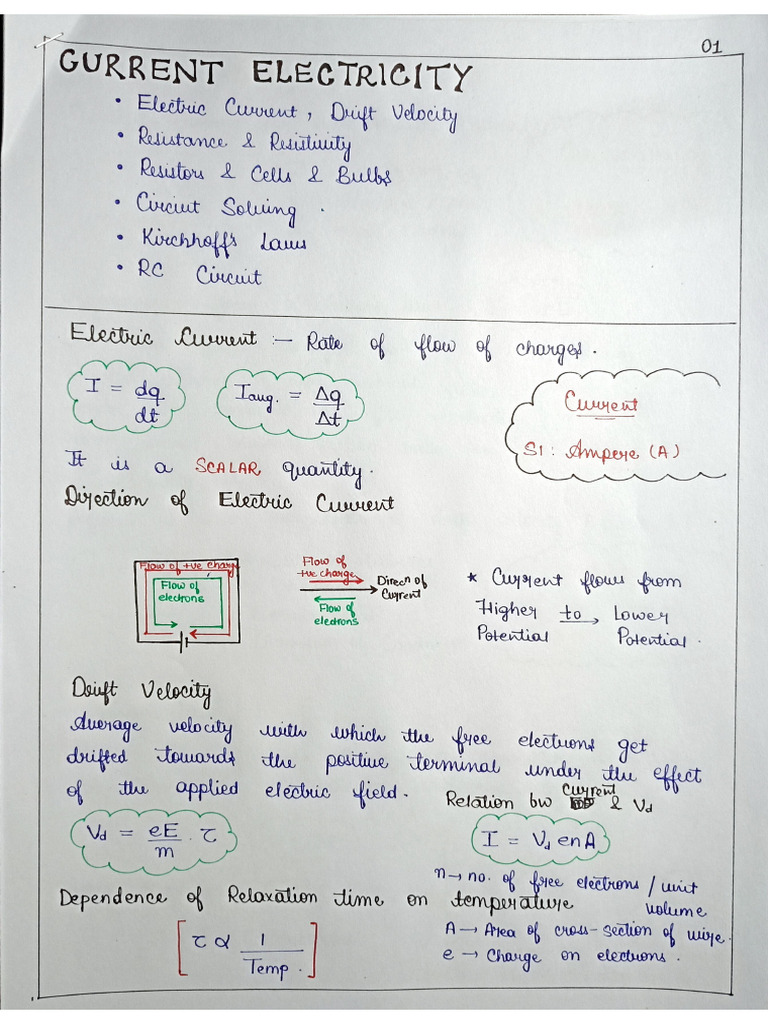 01
CURRENT ELECTRICITY
• Electric Current, Drift Velocity
• Resistance & Resistivity
• Resistors & Cells & Bulbs
• Circuit Solving.
• Kirchhoff's Laws
• RC Circuit
Electric Current :- Rate of flow of charges.
I = dq/dt
Iavg. = Δq/Δt
Current
SI: Ampere (A)
It is a SCALAR quantity.
Direction of Electric Current
Flow of +ve charge
Flow of
electrons
Flow of
+ve charge
Direcn of
Current
Flow of
electrons
* Current flows from
Higher to → Lower
Potential Potential.
Drift Velocity
Average velocity with which the free electrons get
drifted towards the positive terminal under the effect
of the applied electric field.
Relation bw Current & Vd
Vd = eE/m . τ
I = Vd enA
n → no. of free electrons / unit
volume
A → Area of cross-section of wire.
e → Charge on electrons.
Dependence of Relaxation time on temperature
[τ ∝ 1/Temp.]